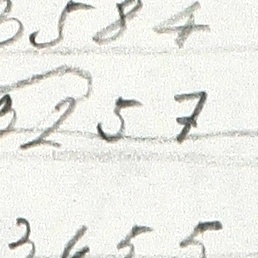 3584
3257
3655